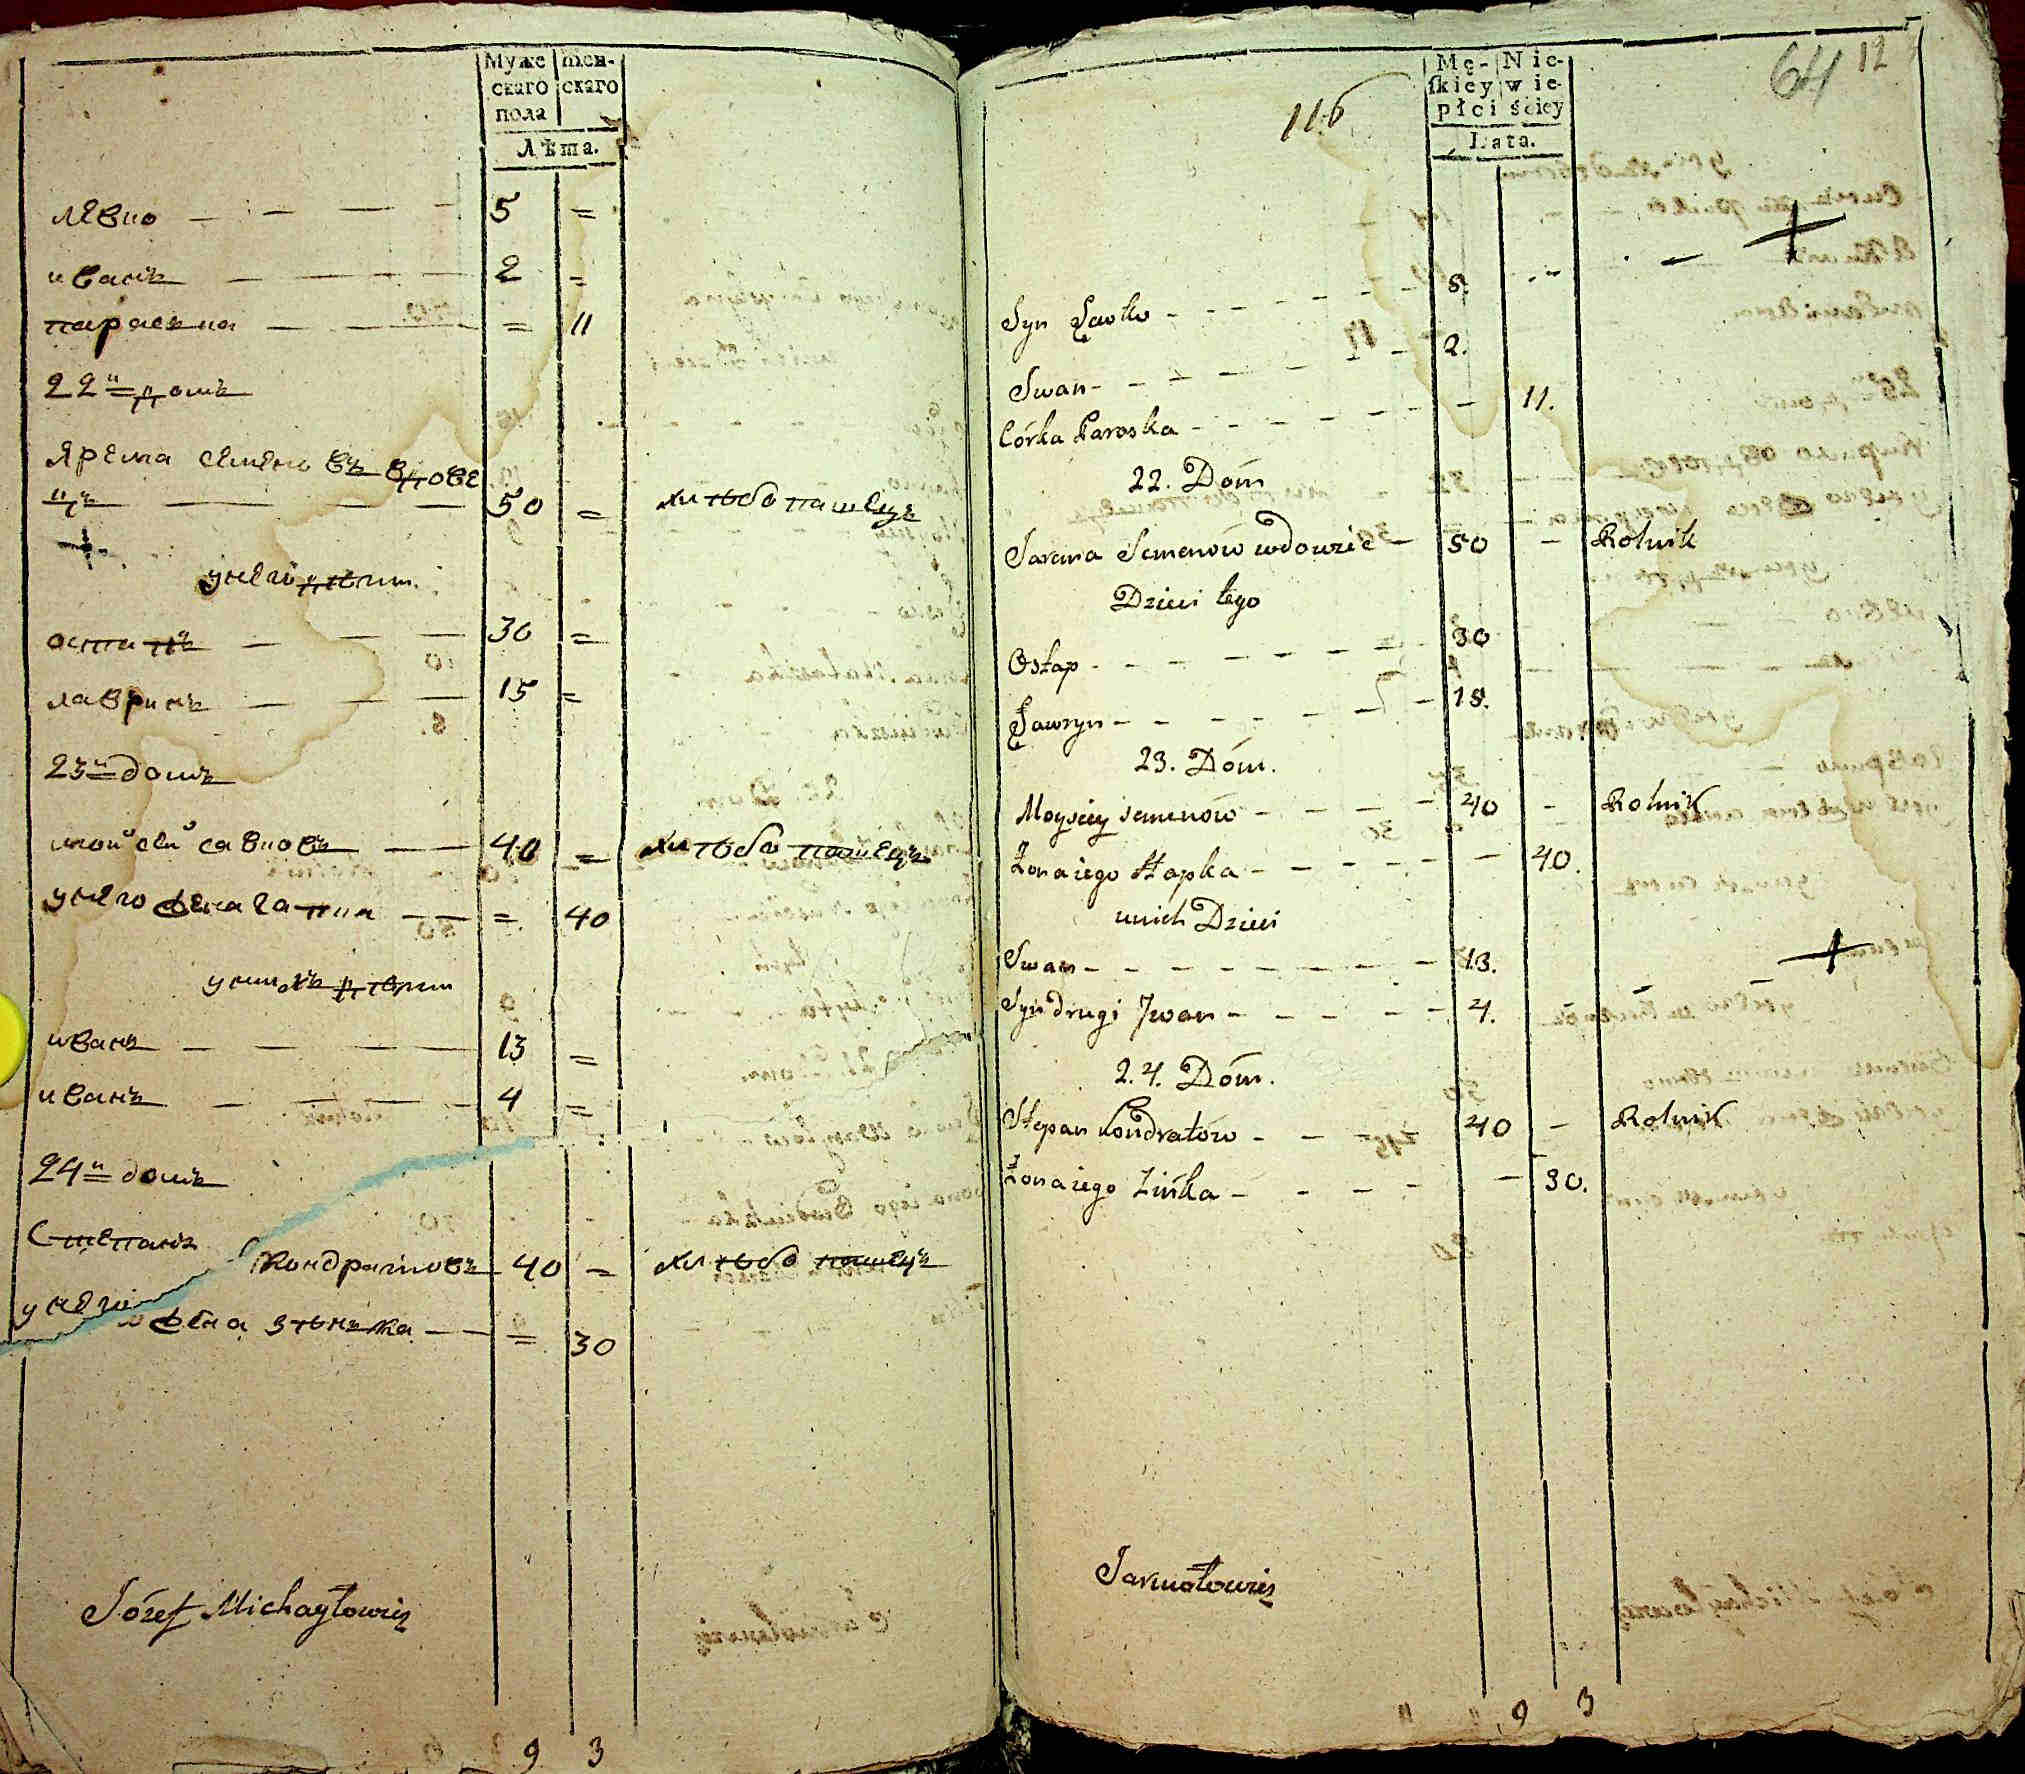 Муже
скаго
пола
Жен-
скаго
Лѣта.
левко 5 =
иванъ 2 =
параска = 11
22й домъ
Ярема семеновъ вдове
цъ 50 = хлѣбопашецъ
у него дѣти
остапъ 30 =
лавринъ 15 =
23й домъ
мойсей савковъ 40 = хлѣбопашецъ
у него жена гапка = 40
у нихъ дѣти
иванъ 13 =
иванъ 4 =
24й домъ
Степанъ
Кондратовъ 40 = хлѣбопашецъ
у него жена зѣнька = 30
Józef Michayłowicz
9 3
116
64 12
Mę-
skiey
płci
Nie-
wie-
ściey
Lata.
Syn Lewko - 5.
Iwan - 2.
Córka Paroska - 11.
22. Dóm
Jarema Semenow wdowiec - 50 - Rolnik
Dzieci iego
Ostap - 30
Ławryn - 15.
23. Dóm.
Moysiey semenow - 40 - Rolnik
Żona iego Hapka - 40.
unich Dzieci
Iwan - 13.
Syn drugi Iwan - 4.
24. Dóm.
Stepan Kondratow - 40 - Rolnik
Żona iego Zińka - 30.
Jarmołowicz
9 3